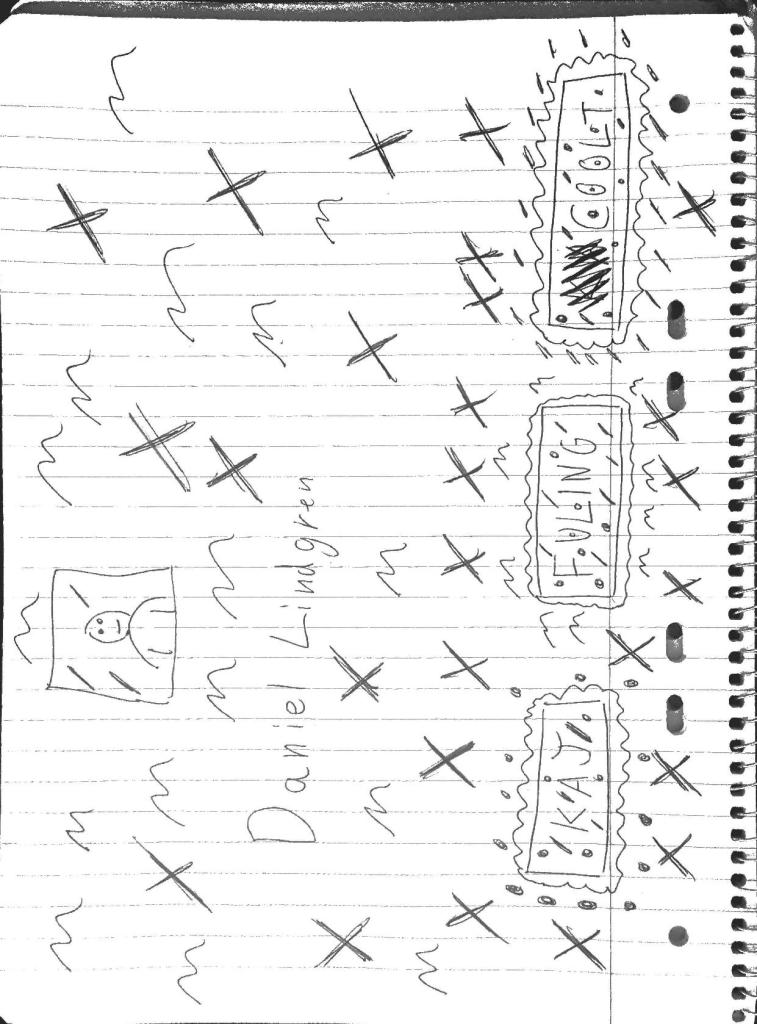 Daniel Lindgren
KAJ FULING COOLT